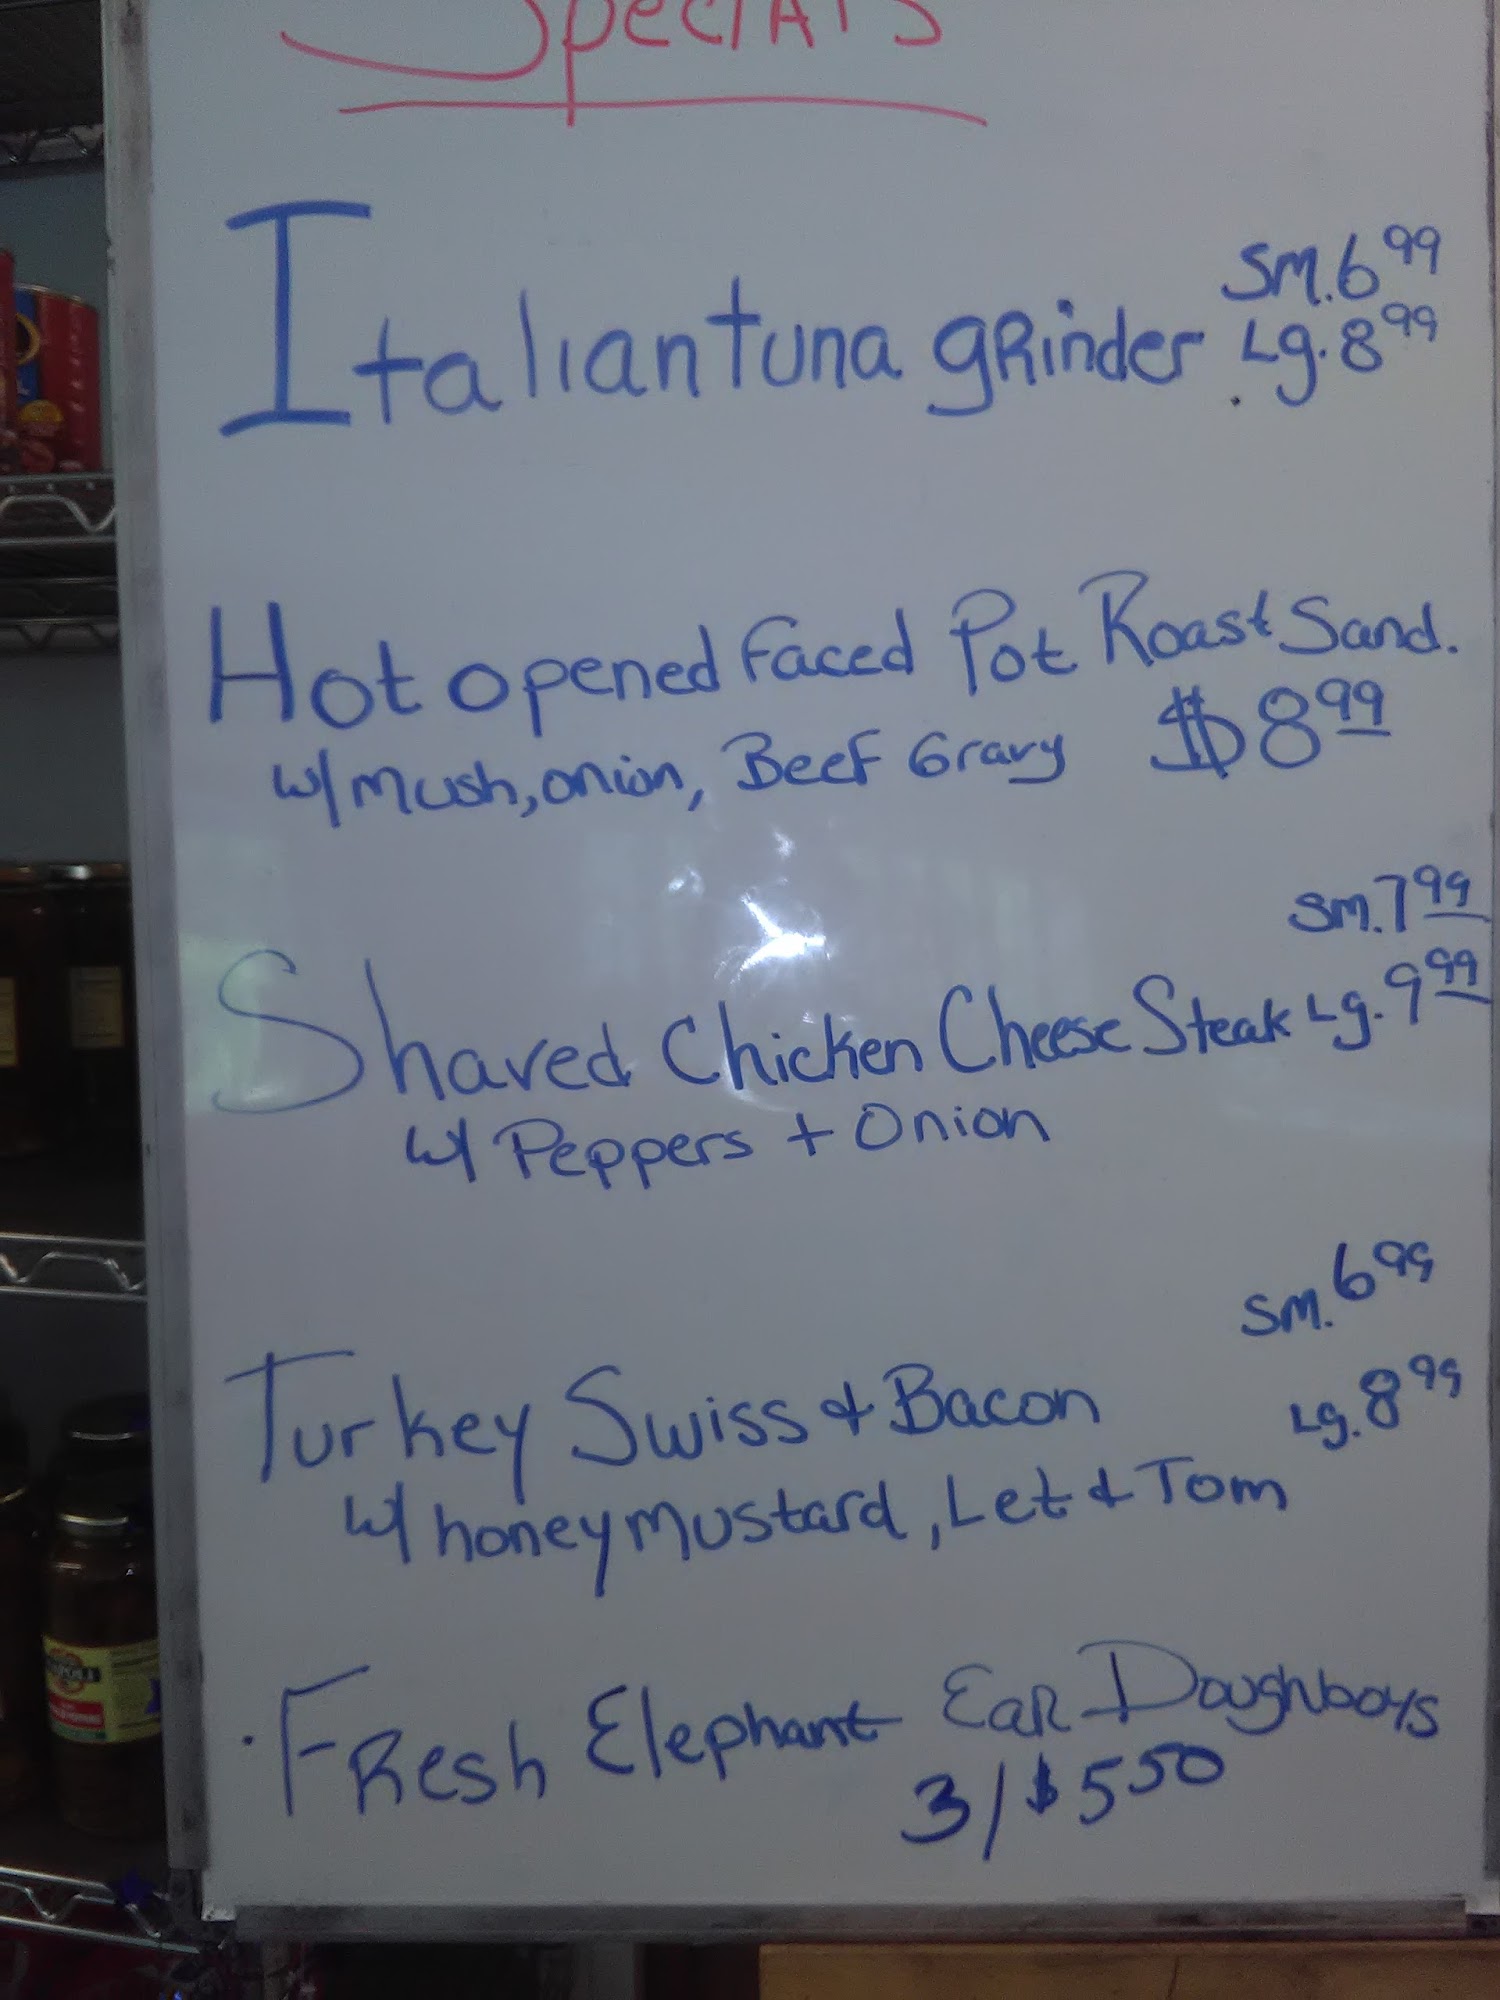 Specials
Italian tuna grinder
Sm. 6 99
Lg. 8 99
Hot opened faced Pot Roast Sand.
w/ mush, onion, Beef Gravy $8 99
Sm. 7 99
Shaved Chicken Cheese Steak Lg. 9 99
w/ Peppers + Onion
Sm. 6 99
Turkey Swiss & Bacon
Lg. 8 99
w/ honey mustard, Let & Tom
· Fresh Elephant Ear Doughboys
3/$5 50